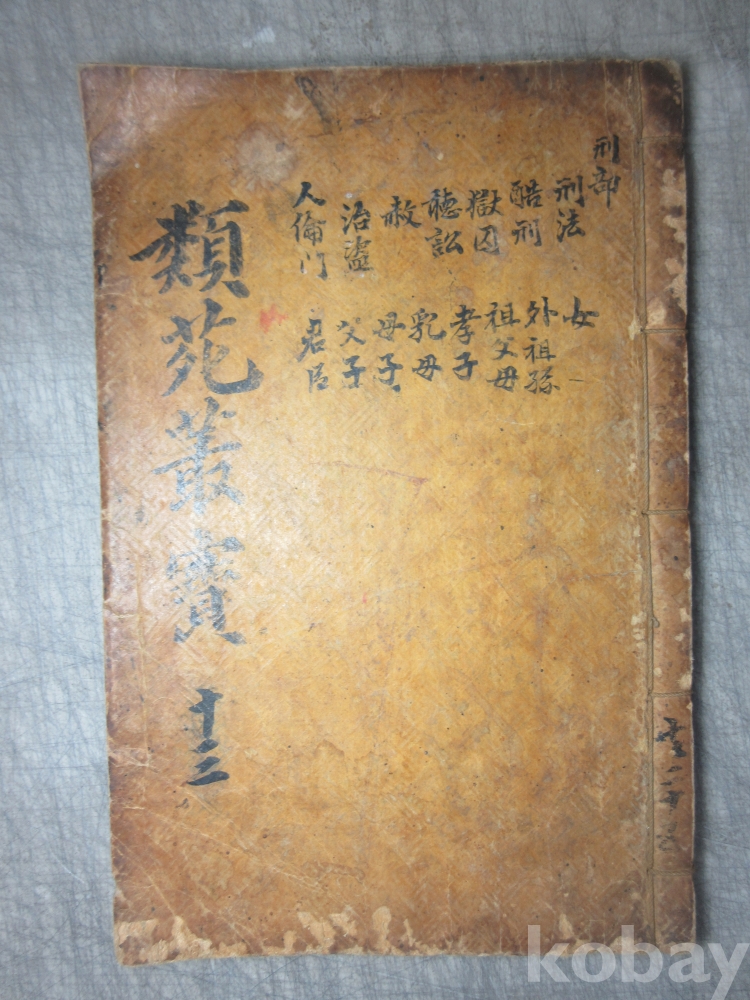 刑部
刑法
酷刑
獄囚
聽訟
赦
治盜
人倫門
女
外祖孫
祖父母
孝子
乳母
母子
父子
君臣
類苑叢寶
十二
kobay